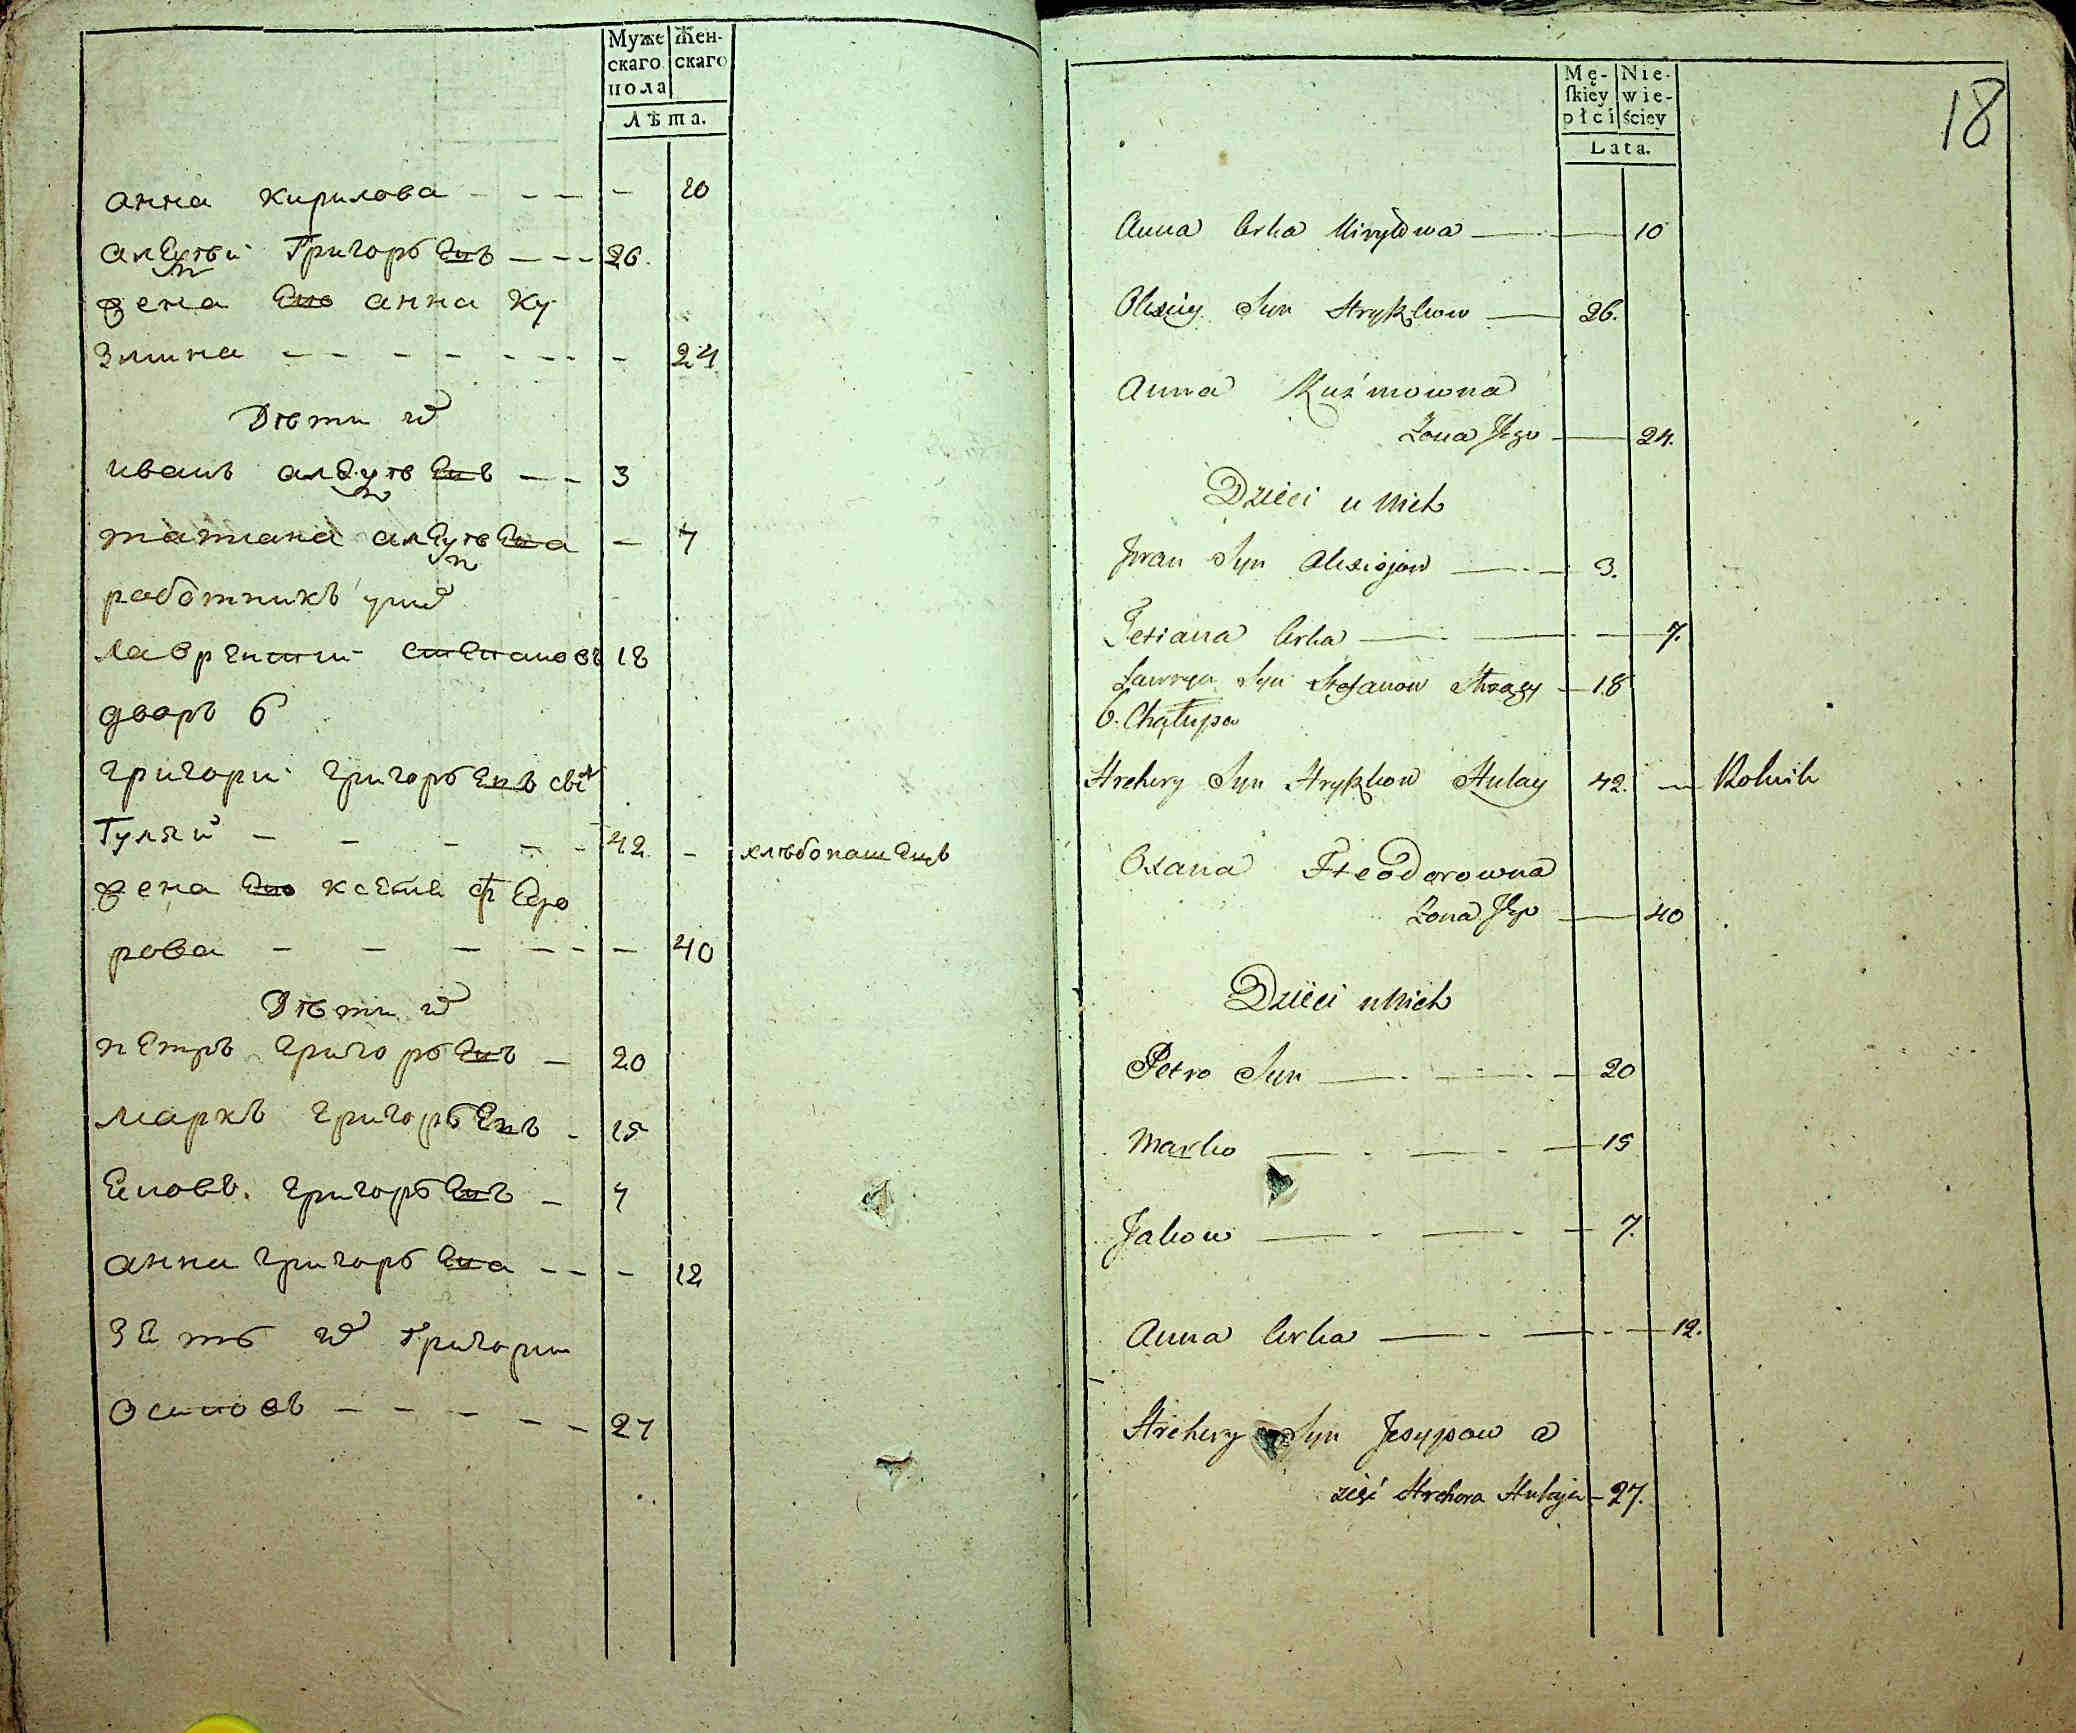 Муже Жен-
скаго скаго
пола
Лѣта.
анна кирилова - - - - 10
алѣѯѣй Григорьевъ - - - 26.
жена его анна ку
змина - - - - - - - 24
Дѣти и^х
иванъ алеѯѣевъ - - 3
татиана алеѯѣева - 7
работникъ у ни^х
лаврентий степановъ 18
дворъ 6
григори григорьевъ сы^н
Гуляй - - - - - 42 - хлѣбопашецъ
жена его ксения ѳедо
рова - - - - - - 40
Дѣти и^х
петръ григорьевъ - 20
маркъ григорьевъ - 15
Яковъ григорьевъ - 7
анна григорьева - - - 12
Зять и^х григории
осиповъ - - - - - 27
Mę- Nie-
ſkiey wie-
płci ściey
Lata.
18
Anna Corka Kiryłowa — — 10
Olexiey Syn Hryhorow — 26.
Anna Kuźmowna
Zona Jego — 24.
Dzieci u Nich
Jwan Syn Olexiejow — . — 3.
Tetiana Corka — . — . — 7.
Ławryn Syn Stefanow Sługa — 18
6. Chałupa
Hrehory Syn Hryhorow Hulay 42. — Rolnik
Oxana Fteodorowna
Zona Jego — 40
Dzieci u Nich
Petro Syn — . — . — 20
Marko — . — . — 15
Jakow — . — . — 7.
Anna Corka — . — . — 12.
Hrehory Syn Jesypow a
zięć Hrehora Hulaja — 27.